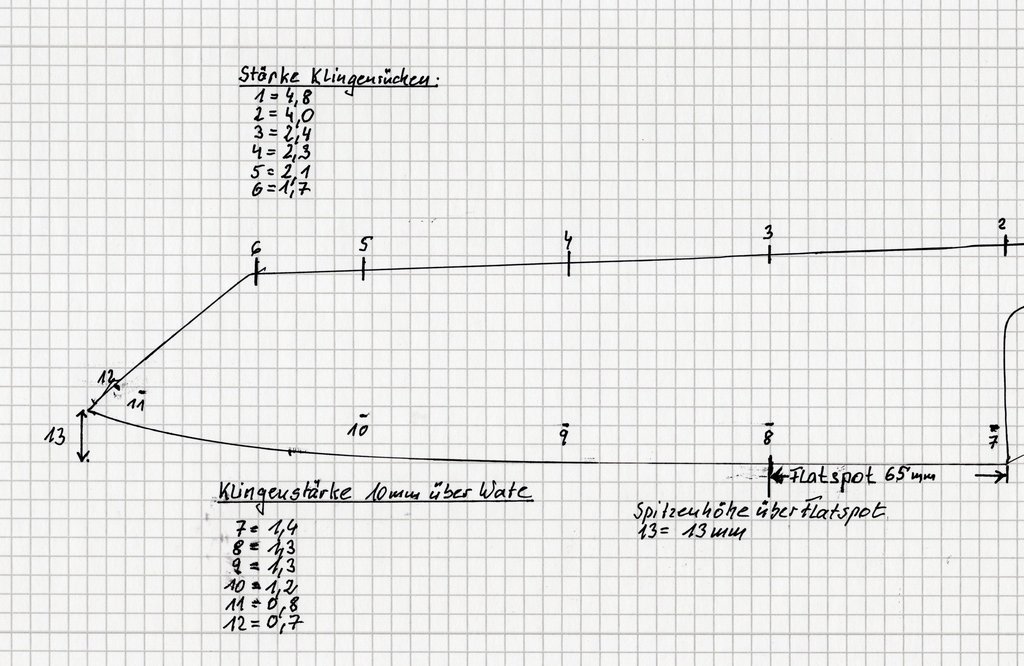 Stärke Klingenrücken:
1 = 4,8
2 = 4,0
3 = 2,4
4 = 2,3
5 = 2,1
6 = 1,7
6
5
4
3
2
12
11
10
9
8
7
13
Flatspot 65mm
Klingenstärke 10mm über Wate
7 = 1,4
8 = 1,3
9 = 1,3
10 = 1,2
11 = 0,8
12 = 0,7
Spitzenhöhe über Flatspot
13 = 13mm